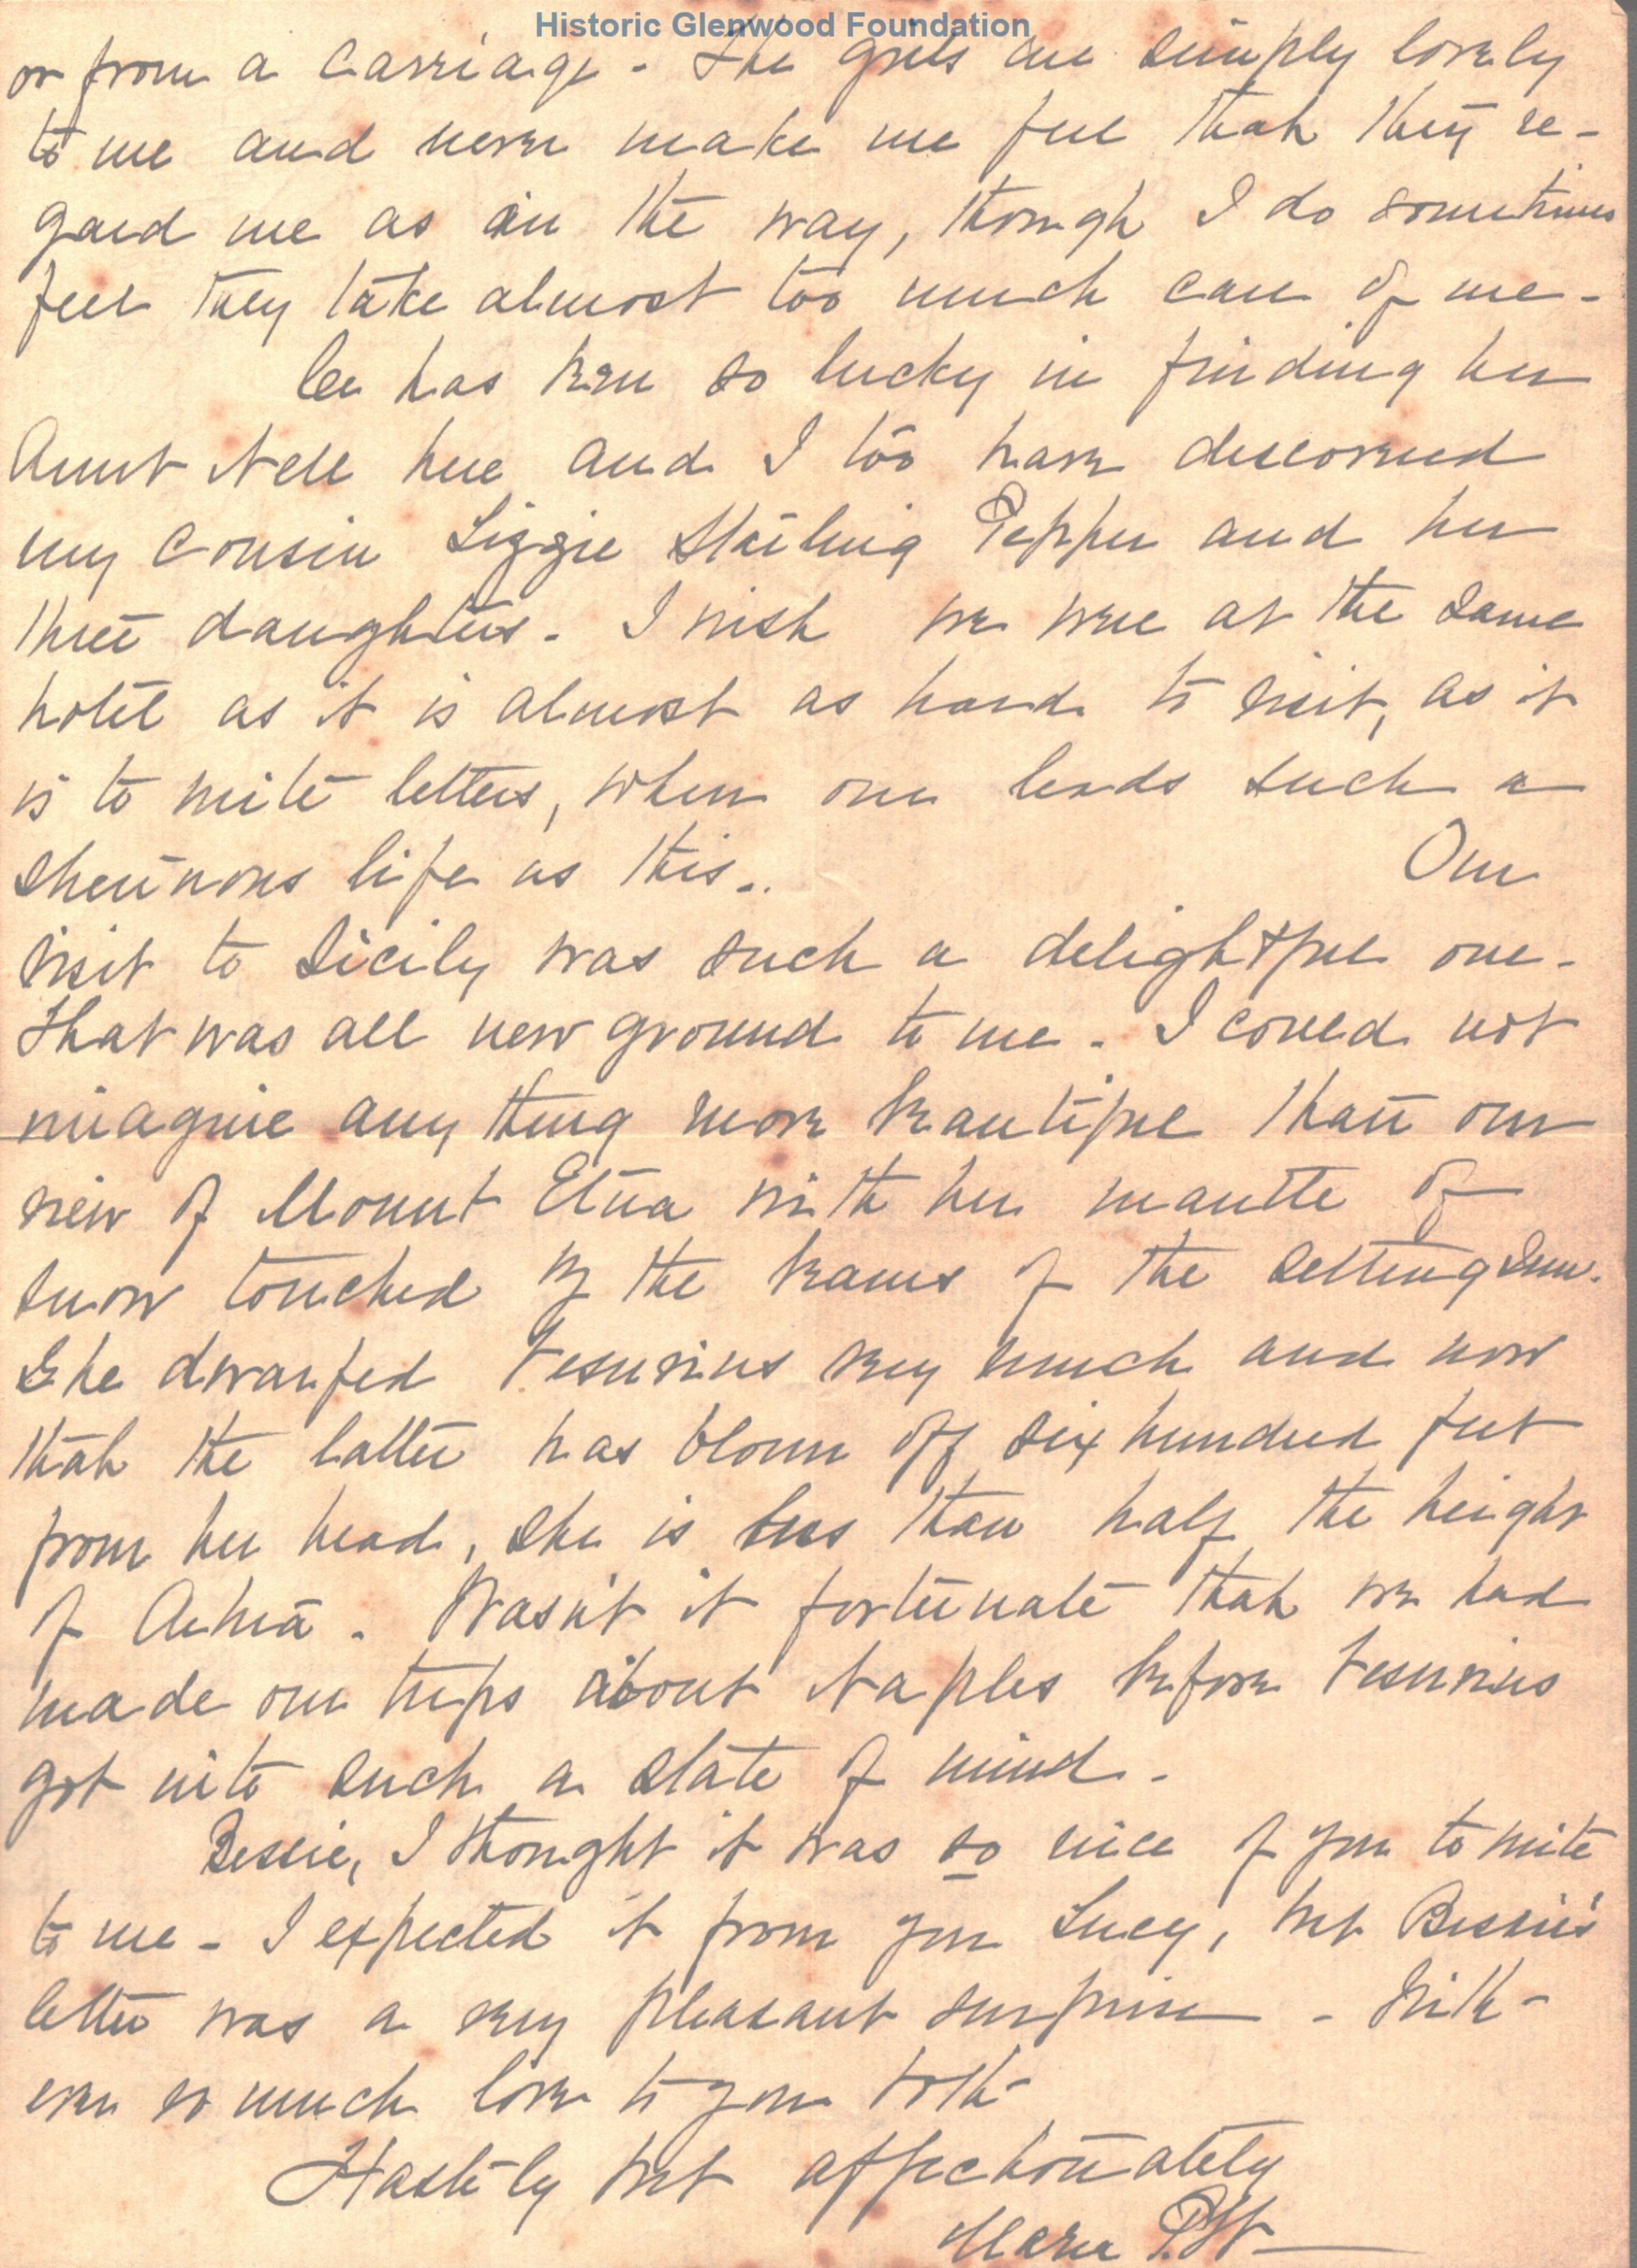 Historic Glenwood Foundation
or from a carriage - The girls are simply lovely
to me and never make me feel that they re-
gard me as in the way, though I do sometimes
feel they take almost too much care of me -
has been so lucky in finding her
Aunt Nell here and I too have discovered
my cousin Lizzie Pepper and her
three daughters - I wish we were at the same
hotel as it is almost as hard to visit, as it
is to write letters, when one leads such a
strenuous life as this -
Our
visit to Sicily was such a delightful one -
That was all new ground to me - I could not
imagine any thing more beautiful than our
view of Mount Etna with her mantle of
snow touched by the beams of the setting sun.
She dwarfed Vesuvius very much and now
that the latter has blown off six hundred feet
from her head, she is less than half the height
of Aetna - Wasn't it fortunate that we had
made our trips about Naples before Vesuvius
got into such a state of mind -
Bessie, I thought it was so nice of you to write
to me - I expected it from you Lucy, but Bessie's
letter was a very pleasant surprise - With -
ever so much love to you both -
Hastily but affectionately